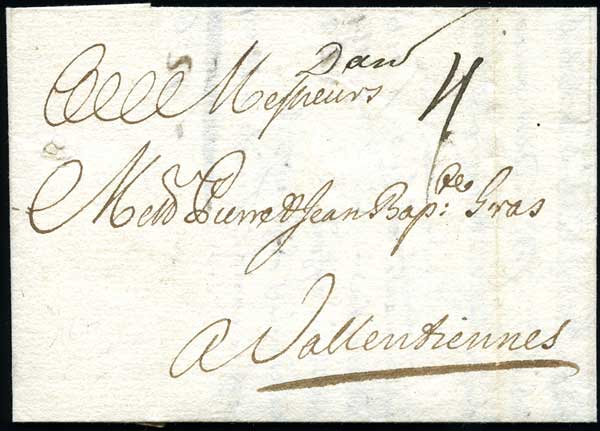 Danv
Messieurs 4
Pierre & Jean Bap: te Gras
a Vallentiennes